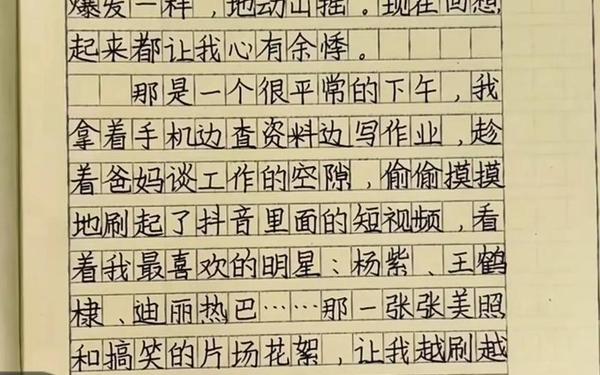 爆发一样，地动山摇。现在回想
起来都让我心有余悸。
那是一个很平常的下午，我
拿着手机边查资料边写作业，趁
着爸妈谈工作的空隙，偷偷摸摸
地刷起了抖音里面的短视频，看
着我最喜欢的明星：杨紫、王鹤
棣、迪丽热巴……那一张张美照
和搞笑的片场花絮，让我越刷越